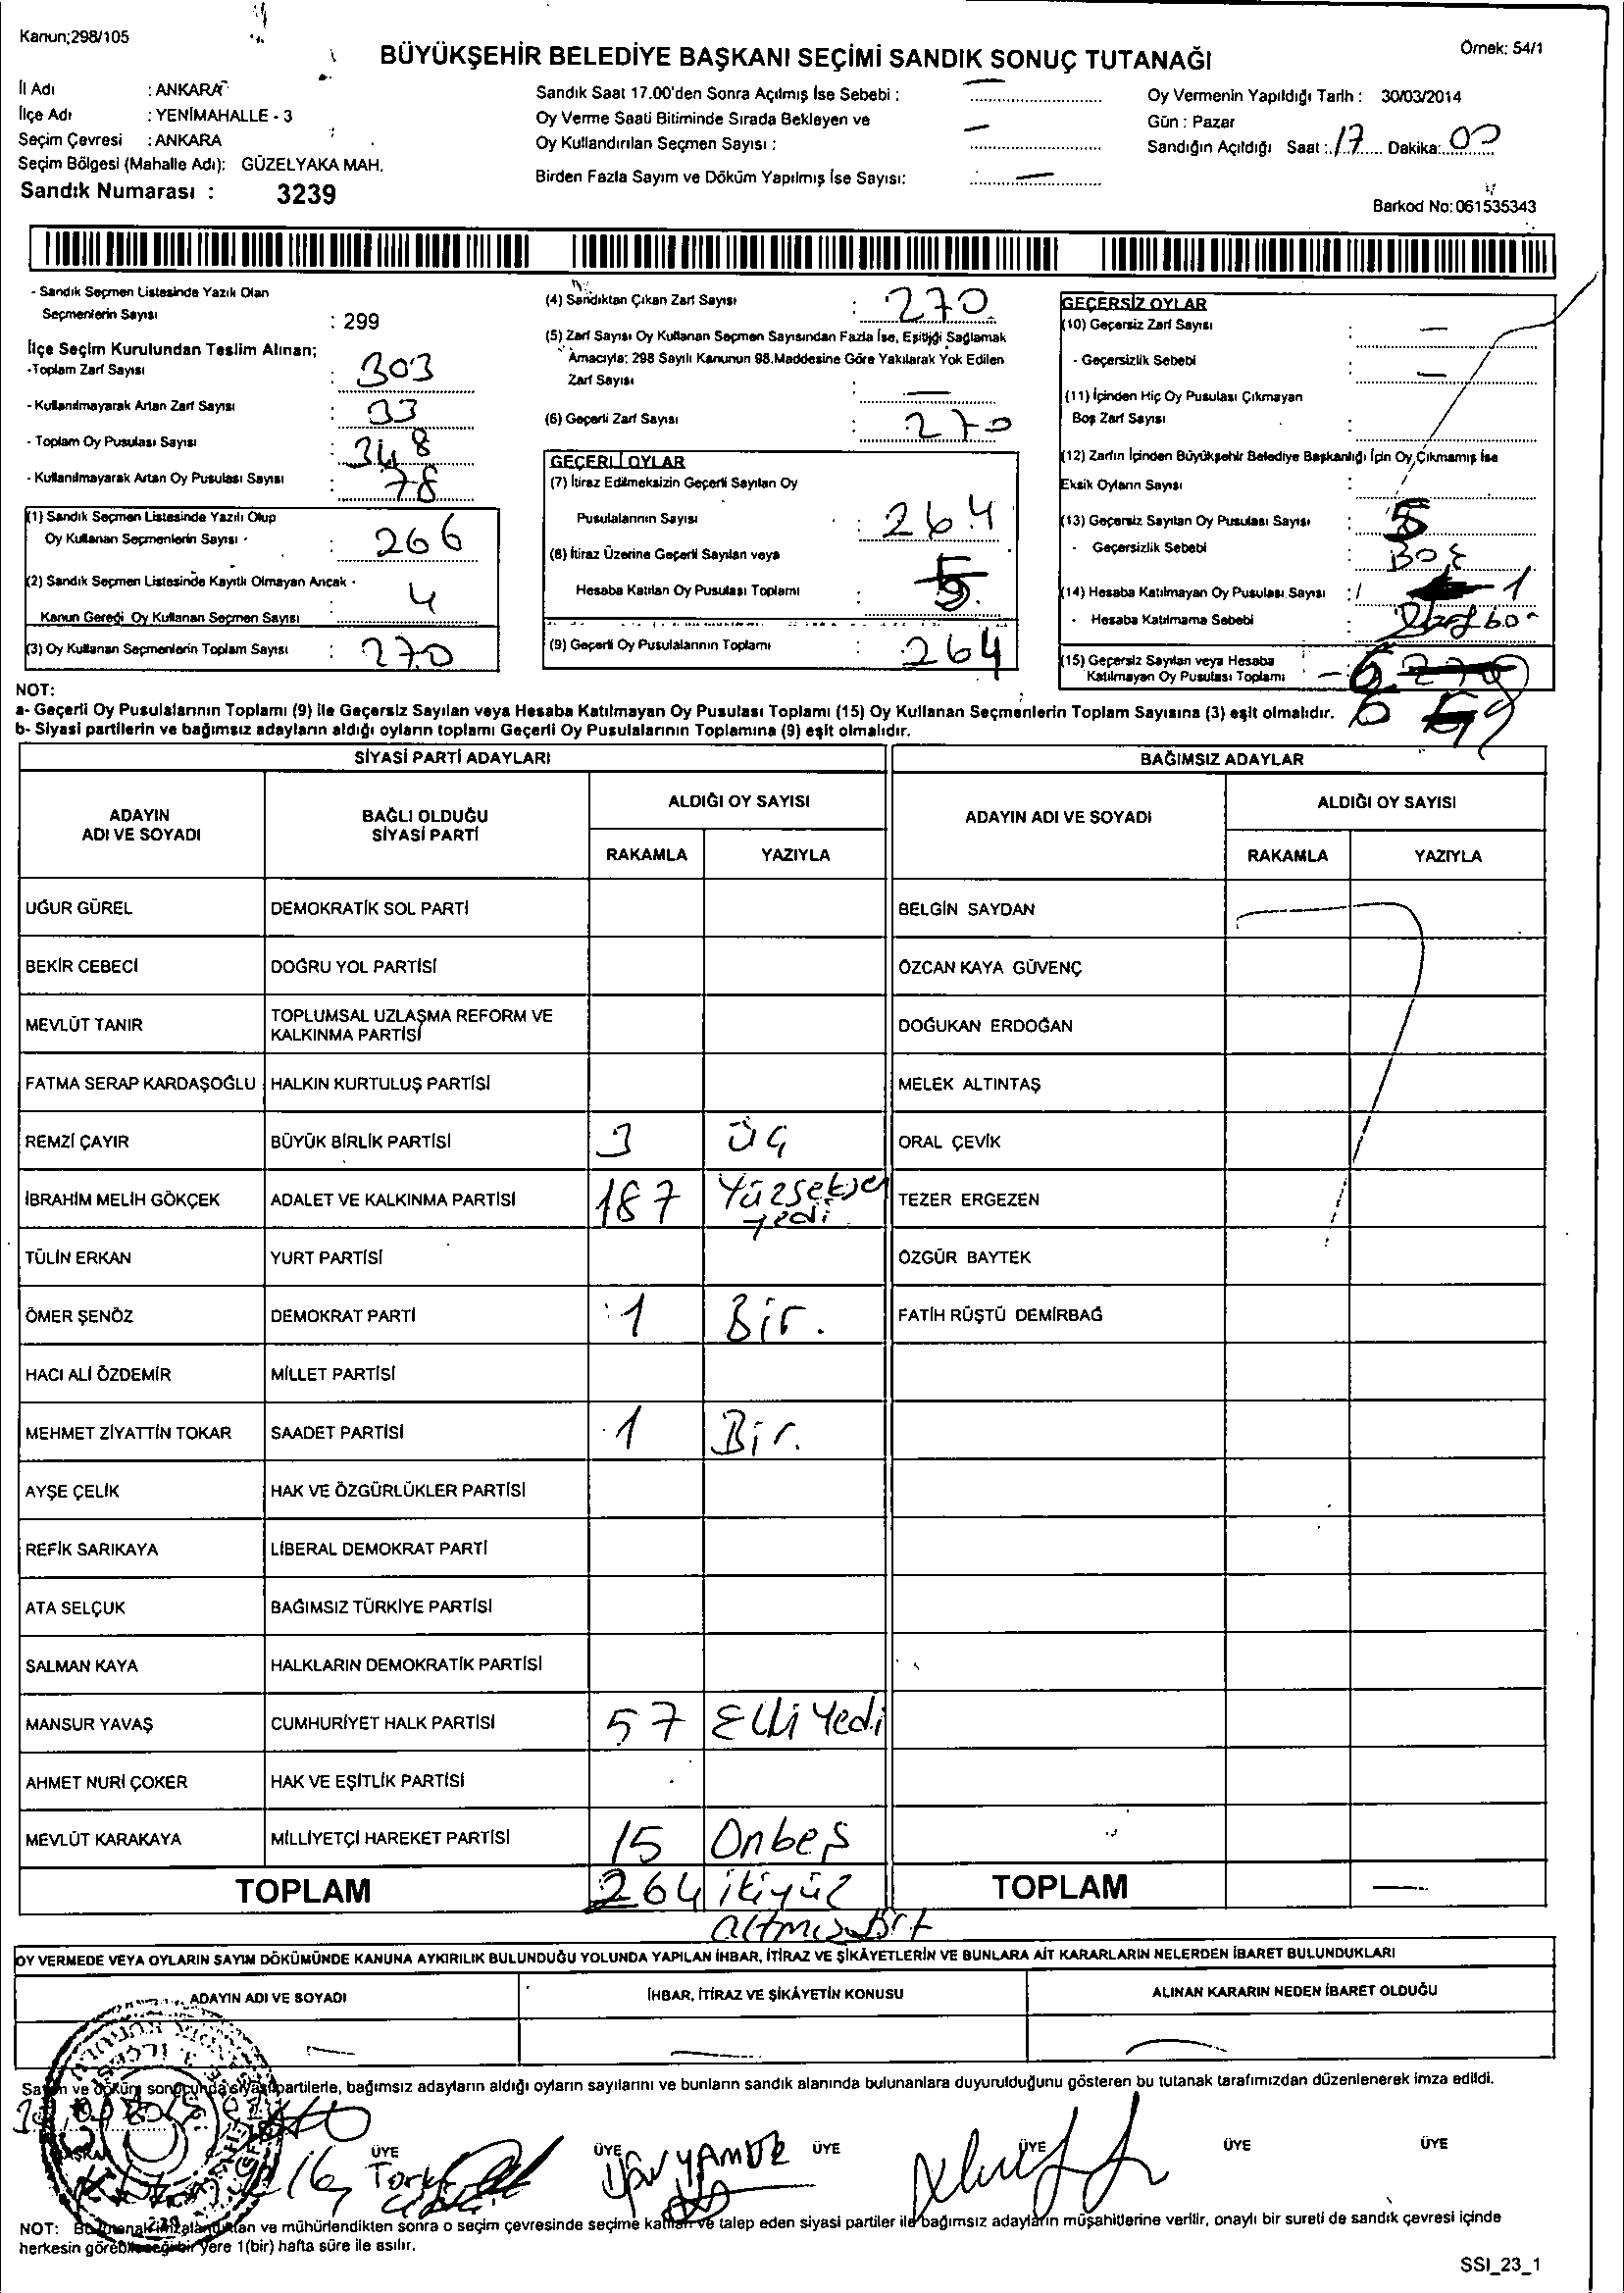 Kanun;298/105
BÜYÜKŞEHİR BELEDİYE BAŞKANI SEÇİMİ SANDIK SONUÇ TUTANAĞI
Örnek: 54/1
İl Adı : ANKARA
İlçe Adı : YENİMAHALLE - 3
Seçim Çevresi : ANKARA
Seçim Bölgesi (Mahalle Adı): GÜZELYAKA MAH.
Sandık Numarası : 3239
Sandık Saat 17.00'den Sonra Açılmış İse Sebebi : —
Oy Verme Saati Bitiminde Sırada Bekleyen ve
Oy Kullandırılan Seçmen Sayısı : —
Birden Fazla Sayım ve Döküm Yapılmış İse Sayısı: —
Oy Vermenin Yapıldığı Tarih : 30/03/2014
Gün : Pazar
Sandığın Açıldığı Saat : 17 Dakika: 00
Barkod No: 061535343
- Sandık Seçmen Listesinde Yazılı Olan
Seçmenlerin Sayısı : 299
İlçe Seçim Kurulundan Teslim Alınan;
-Toplam Zarf Sayısı : 303
- Kullanılmayarak Artan Zarf Sayısı : 33
- Toplam Oy Pusulası Sayısı : 348
- Kullanılmayarak Artan Oy Pusulası Sayısı : 78
(1) Sandık Seçmen Listesinde Yazılı Olup
Oy Kullanan Seçmenlerin Sayısı : 266
(2) Sandık Seçmen Listesinde Kayıtlı Olmayan Ancak
Kanun Gereği Oy Kullanan Seçmen Sayısı : 4
(3) Oy Kullanan Seçmenlerin Toplam Sayısı : 270
(4) Sandıktan Çıkan Zarf Sayısı : 270
(5) Zarf Sayısı Oy Kullanan Seçmen Sayısından Fazla İse, Eşitliği Sağlamak
Amacıyla; 298 Sayılı Kanunun 98.Maddesine Göre Yakılarak Yok Edilen
Zarf Sayısı : —
(6) Geçerli Zarf Sayısı : 270
GEÇERLİ OYLAR
(7) İtiraz Edilmeksizin Geçerli Sayılan Oy
Pusulalarının Sayısı : 264
(8) İtiraz Üzerine Geçerli Sayılan veya
Hesaba Katılan Oy Pusulası Toplamı :
(9) Geçerli Oy Pusulalarının Toplamı : 264
GEÇERSİZ OYLAR
(10) Geçersiz Zarf Sayısı : —
- Geçersizlik Sebebi : —
(11) İçinden Hiç Oy Pusulası Çıkmayan
Boş Zarf Sayısı :
(12) Zarfın İçinden Büyükşehir Belediye Başkanlığı İçin Oy Çıkmamış İse
Eksik Oyların Sayısı :
(13) Geçersiz Sayılan Oy Pusulası Sayısı : 5
- Geçersizlik Sebebi : Boş
(14) Hesaba Katılmayan Oy Pusulası Sayısı : 1
- Hesaba Katılmama Sebebi :
(15) Geçersiz Sayılan veya Hesaba
Katılmayan Oy Pusulası Toplamı : 6
6
NOT:
a- Geçerli Oy Pusulalarının Toplamı (9) ile Geçersiz Sayılan veya Hesaba Katılmayan Oy Pusulası Toplamı (15) Oy Kullanan Seçmenlerin Toplam Sayısına (3) eşit olmalıdır.
b- Siyasi partilerin ve bağımsız adayların aldığı oyların toplamı Geçerli Oy Pusulalarının Toplamına (9) eşit olmalıdır.
SİYASİ PARTİ ADAYLARI
ADAYIN ADI VE SOYADI
BAĞLI OLDUĞU SİYASİ PARTİ
ALDIĞI OY SAYISI
RAKAMLA YAZIYLA
UĞUR GÜREL DEMOKRATİK SOL PARTİ
BEKİR CEBECİ DOĞRU YOL PARTİSİ
MEVLÜT TANIR TOPLUMSAL UZLAŞMA REFORM VE KALKINMA PARTİSİ
FATMA SERAP KARDAŞOĞLU HALKIN KURTULUŞ PARTİSİ
REMZİ ÇAYIR BÜYÜK BİRLİK PARTİSİ 3 Üç
İBRAHİM MELİH GÖKÇEK ADALET VE KALKINMA PARTİSİ 187 Yüzseksen yedi
TÜLİN ERKAN YURT PARTİSİ
ÖMER ŞENÖZ DEMOKRAT PARTİ 1 Bir.
HACI ALİ ÖZDEMİR MİLLET PARTİSİ
MEHMET ZİYATTİN TOKAR SAADET PARTİSİ 1 Bir.
AYŞE ÇELİK HAK VE ÖZGÜRLÜKLER PARTİSİ
REFİK SARIKAYA LİBERAL DEMOKRAT PARTİ
ATA SELÇUK BAĞIMSIZ TÜRKİYE PARTİSİ
SALMAN KAYA HALKLARIN DEMOKRATİK PARTİSİ
MANSUR YAVAŞ CUMHURİYET HALK PARTİSİ 57 Elli Yedi
AHMET NURİ ÇOKER HAK VE EŞİTLİK PARTİSİ
MEVLÜT KARAKAYA MİLLİYETÇİ HAREKET PARTİSİ 15 Onbeş
TOPLAM 264 ikiyüz altmış Dört
BAĞIMSIZ ADAYLAR
ADAYIN ADI VE SOYADI
ALDIĞI OY SAYISI
RAKAMLA YAZIYLA
BELGİN SAYDAN
ÖZCAN KAYA GÜVENÇ
DOĞUKAN ERDOĞAN
MELEK ALTINTAŞ
ORAL ÇEVİK
TEZER ERGEZEN
ÖZGÜR BAYTEK
FATİH RÜŞTÜ DEMİRBAĞ
TOPLAM —
OY VERMEDE VEYA OYLARIN SAYIM DÖKÜMÜNDE KANUNA AYKIRILIK BULUNDUĞU YOLUNDA YAPILAN İHBAR, İTİRAZ VE ŞİKÂYETLERİN VE BUNLARA AİT KARARLARIN NELERDEN İBARET BULUNDUKLARI
ADAYIN ADI VE SOYADI İHBAR, İTİRAZ VE ŞİKÂYETİN KONUSU ALINAN KARARIN NEDEN İBARET OLDUĞU
— — —
Sayım ve döküm sonucunda siyasi partilerle, bağımsız adayların aldığı oyların sayılarını ve bunların sandık alanında bulunanlara duyurulduğunu gösteren bu tutanak tarafımızdan düzenlenerek imza edildi.
BAŞKAN ÜYE ÜYE ÜYE ÜYE ÜYE ÜYE
NOT: Bu tutanak imzalandıktan ve mühürlendikten sonra o seçim çevresinde seçime katılan ve talep eden siyasi partiler ile bağımsız adayların müşahitlerine verilir, onaylı bir sureti de sandık çevresi içinde
herkesin görebileceği bir yere 1(bir) hafta süre ile asılır.
SSI_23_1